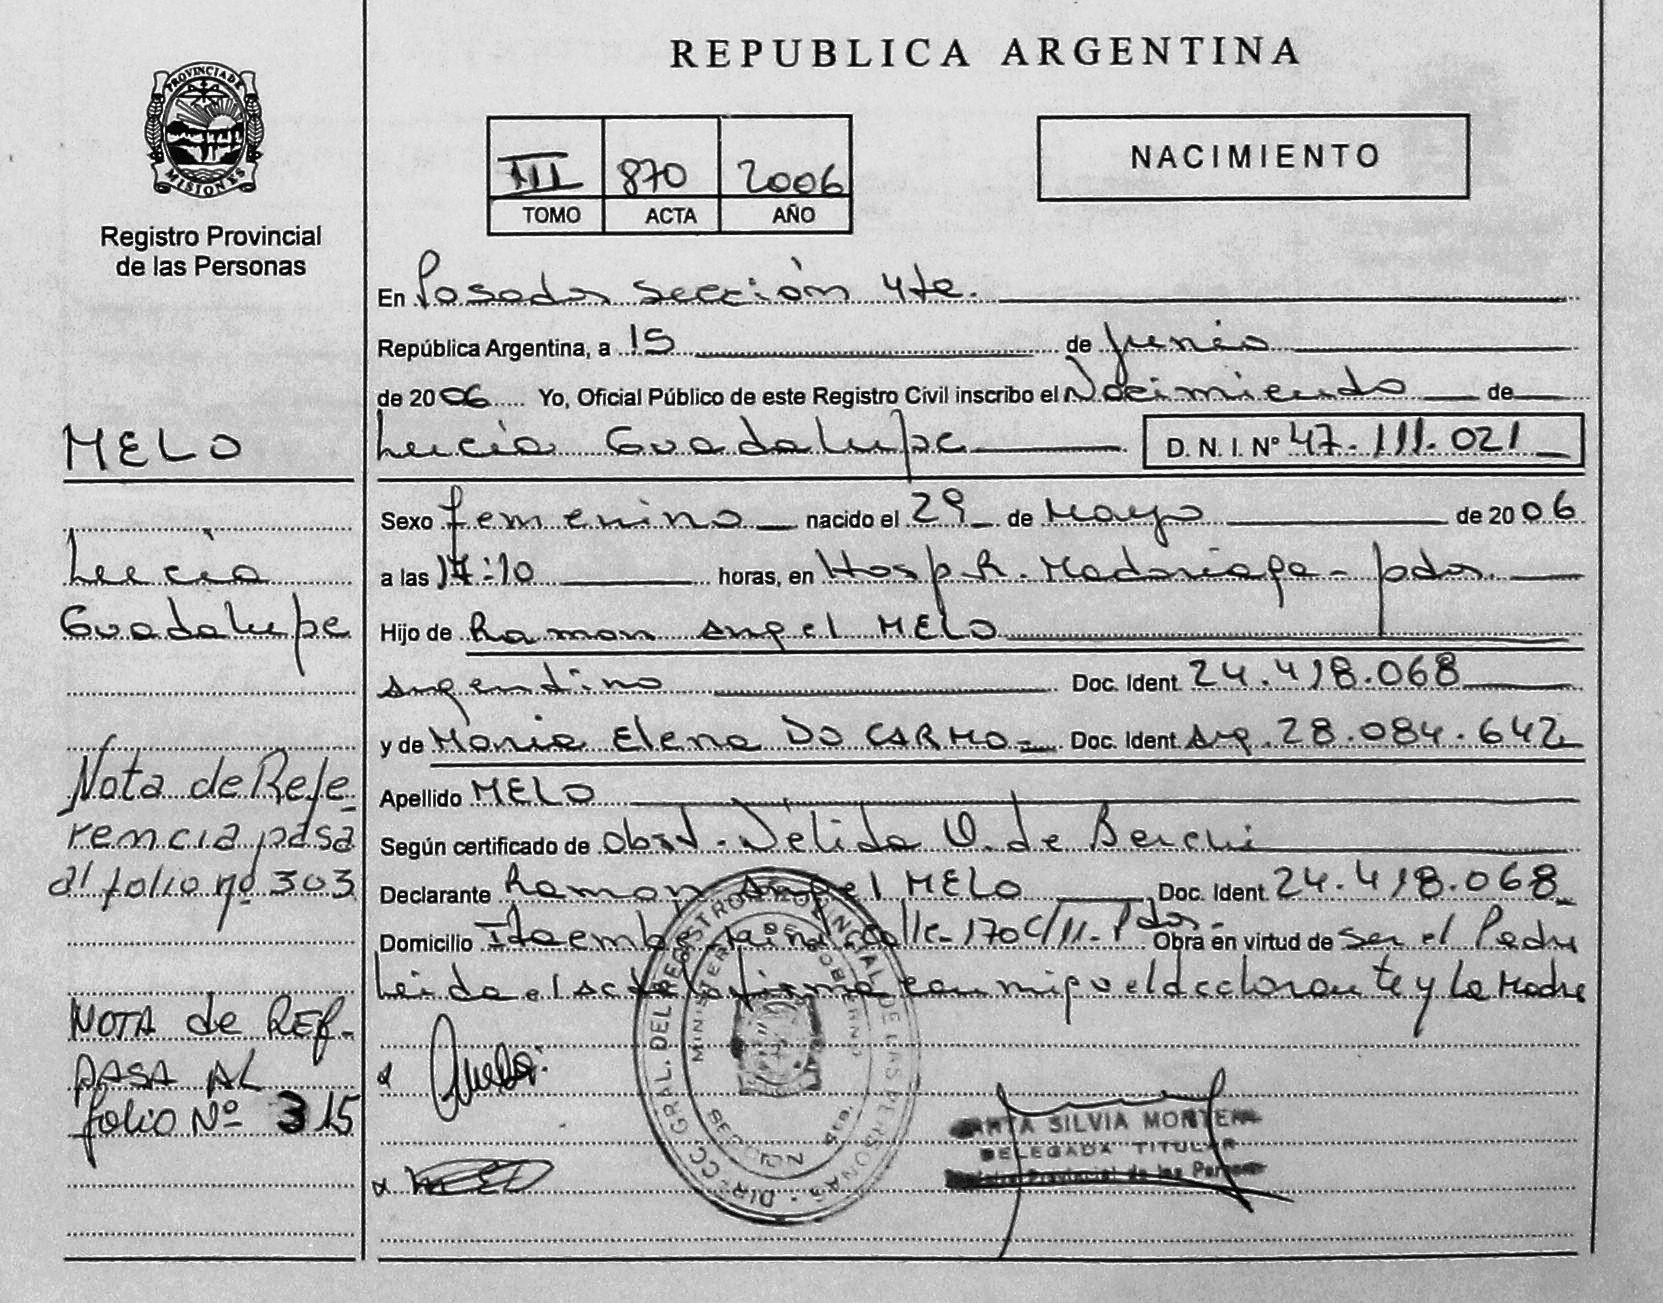 REPUBLICA ARGENTINA
PROVINCIA DE
MISIONES
Registro Provincial
de las Personas
III 870 2006
TOMO ACTA AÑO
NACIMIENTO
En Posadas sección 4ta.
República Argentina, a 15 de junio
de 2006 Yo, Oficial Público de este Registro Civil inscribo el Nacimiento de
Lucía Guadalupe D. N. I. Nº 47.111.021
Sexo femenino nacido el 29 de Mayo de 2006
a las 17:10 horas, en Hosp. R. Madariaga - pdas.
Hijo de Ramon Angel MELO
Argentino Doc. Ident. 24.418.068
y de Maria Elena DO CARMO Doc. Ident. Arg. 28.084.642
Apellido MELO
Según certificado de obst. Nélida de
Declarante Ramon Angel MELO Doc. Ident. 24.418.068
Domicilio Itaembe calle 170 c/11. Pdas. Obra en virtud de ser el Padre
Leída el acta la firman conmigo el declarante y la Madre
MELO
Lucía
Guadalupe
Nota de Refe-
rencia pasa
al folio nº 303
NOTA de REF.
PASA AL
folio Nº 315
DIRECC. GRAL. DEL REGISTRO PROVINCIAL DE LAS PERSONAS
MINISTERIO DE GOBIERNO
SECCION 4ta.
SILVIA
DELEGADA TITULAR
Provincial de las